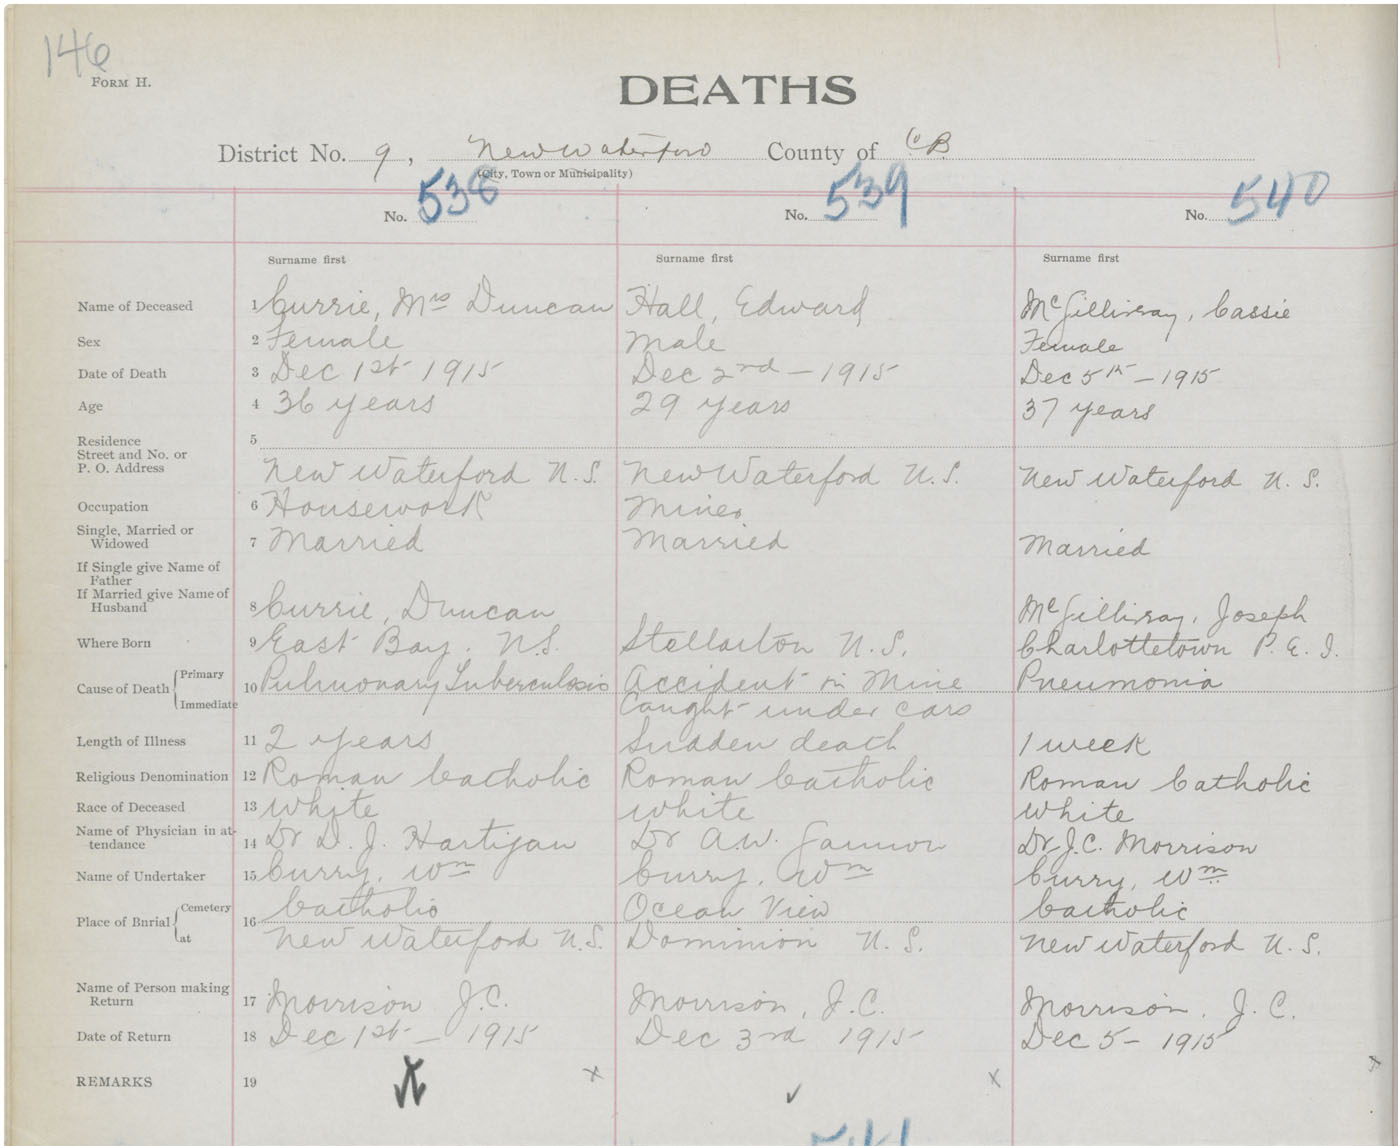 146
FORM H.
DEATHS
District No. 9, New Waterford County of Co B.
(City, Town or Municipality)
No. 538 No. 539 No. 540
Surname first Surname first Surname first
Name of Deceased 1 Currie, Mrs Duncan Hall, Edward McGillivray, Cassie
Sex 2 Female Male Female
Date of Death 3 Dec 1st 1915 Dec 2nd - 1915 Dec 5th - 1915
Age 4 36 years 29 years 37 years
Residence 5
Street and No. or
P. O. Address New Waterford N.S. New Waterford N.S. New Waterford N.S.
Occupation 6 Housework Miner
Single, Married or
Widowed 7 Married Married Married
If Single give Name of
Father
If Married give Name of
Husband 8 Currie, Duncan McGillivray, Joseph
Where Born 9 East Bay. N.S. Stellarton N.S. Charlottetown P.E.I.
Cause of Death Primary 10 Pulmonary Tuberculosis Accident in Mine Pneumonia
Immediate Caught under cars
Length of Illness 11 2 years Sudden death 1 week
Religious Denomination 12 Roman Catholic Roman Catholic Roman Catholic
Race of Deceased 13 White White White
Name of Physician in at-
tendance 14 Dr D. J. Hartigan Dr A.W. Gannon Dr J.C. Morrison
Name of Undertaker 15 Curry, Wm Curry, Wm Curry, Wm
Place of Bnrial Cemetery 16 Catholic Ocean View Catholic
at New Waterford N.S. Dominion N.S. New Waterford N.S.
Name of Person making
Return 17 Morrison J.C. Morrison, J.C. Morrison, J.C.
Date of Return 18 Dec 1st - 1915 Dec 3rd 1915 Dec 5 - 1915
REMARKS 19 x x x
541